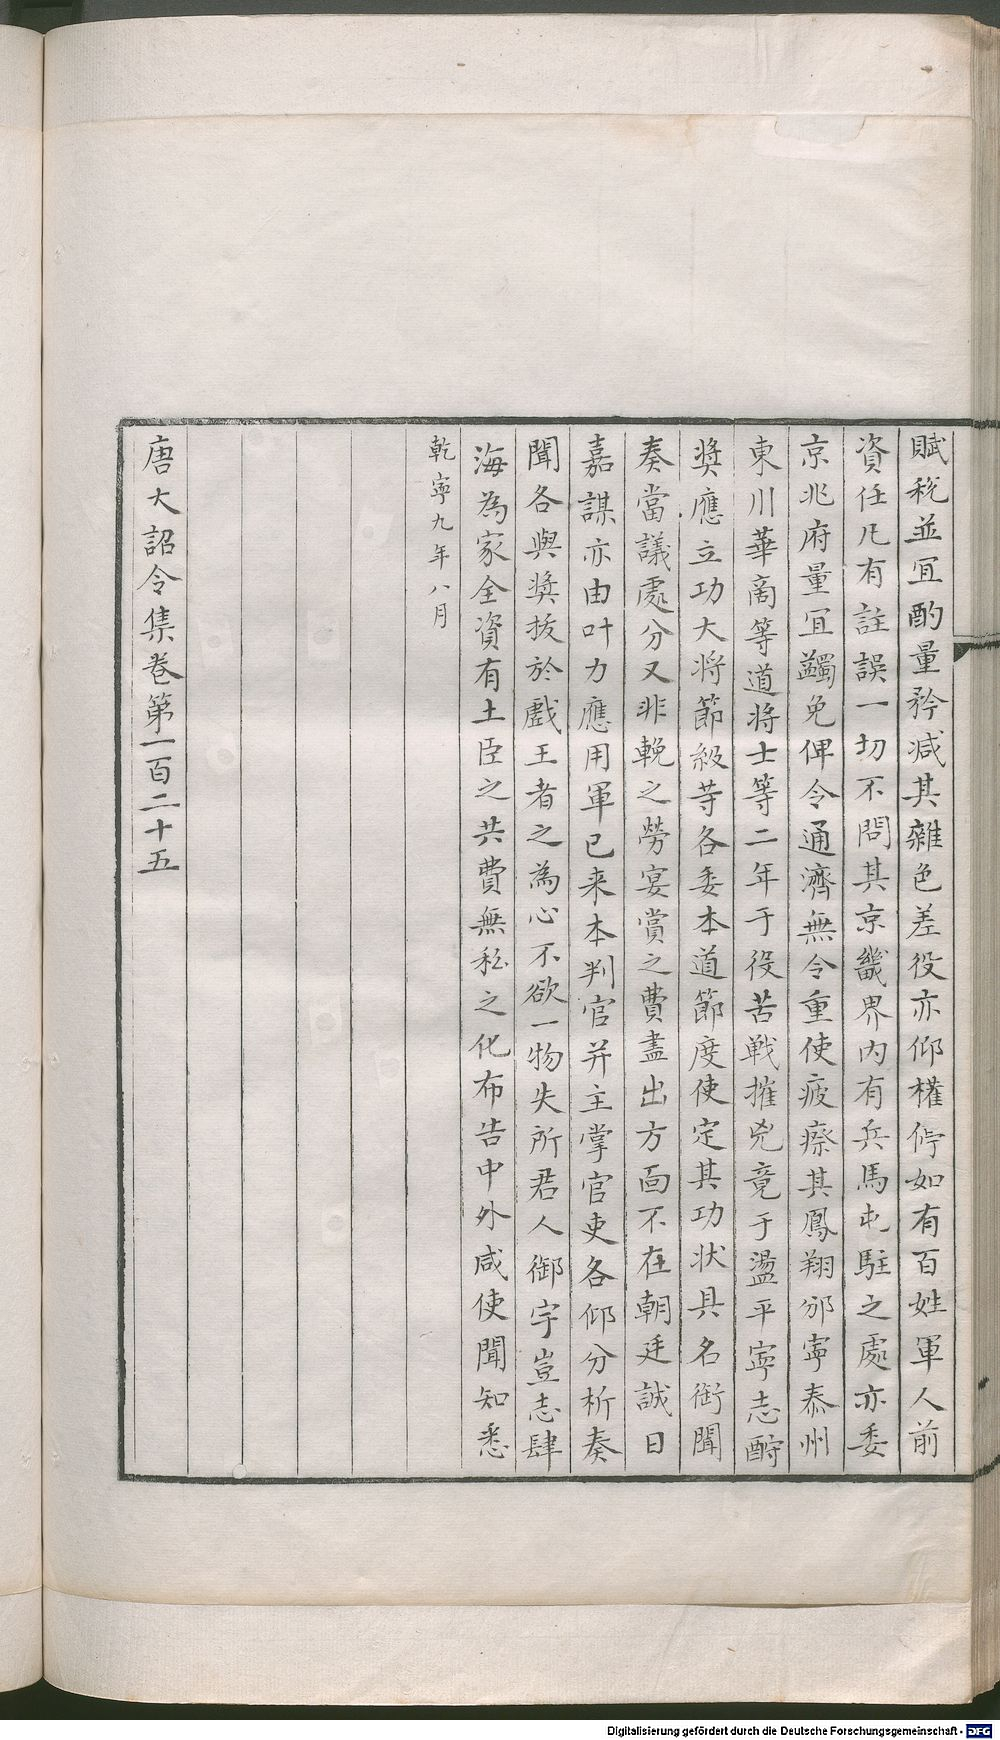 賦稅並宜酌量矜减其雜色差役亦仰權停如有百姓軍人前
資任凡有註誤一切不問其京畿界内有兵馬屯駐之處亦委
京兆府量宜蠲免俾令通濟無令重使疲瘵其鳳翔邠寧泰州
東川華商等道將士等二年于役苦戰摧兇竟于盪平寧志酧
奬應立功大將節級等各委本道節度使定其功狀具名銜聞
奏當議處分又非輓之勞宴賞之費盡出方面不在朝廷誠曰
嘉謀亦由叶力應用軍已来本判官并主掌官吏各仰分析奏
聞各與奬拔於戲王者之為心不欲一物失所君人御宇豈志肆
海為家全資有土臣之共費無私之化布告中外咸使聞知悉
乾寧九年八月
唐大詔令集卷第一百二十五
Digitalisierung gefördert durch die Deutsche Forschungsgemeinschaft - DFG